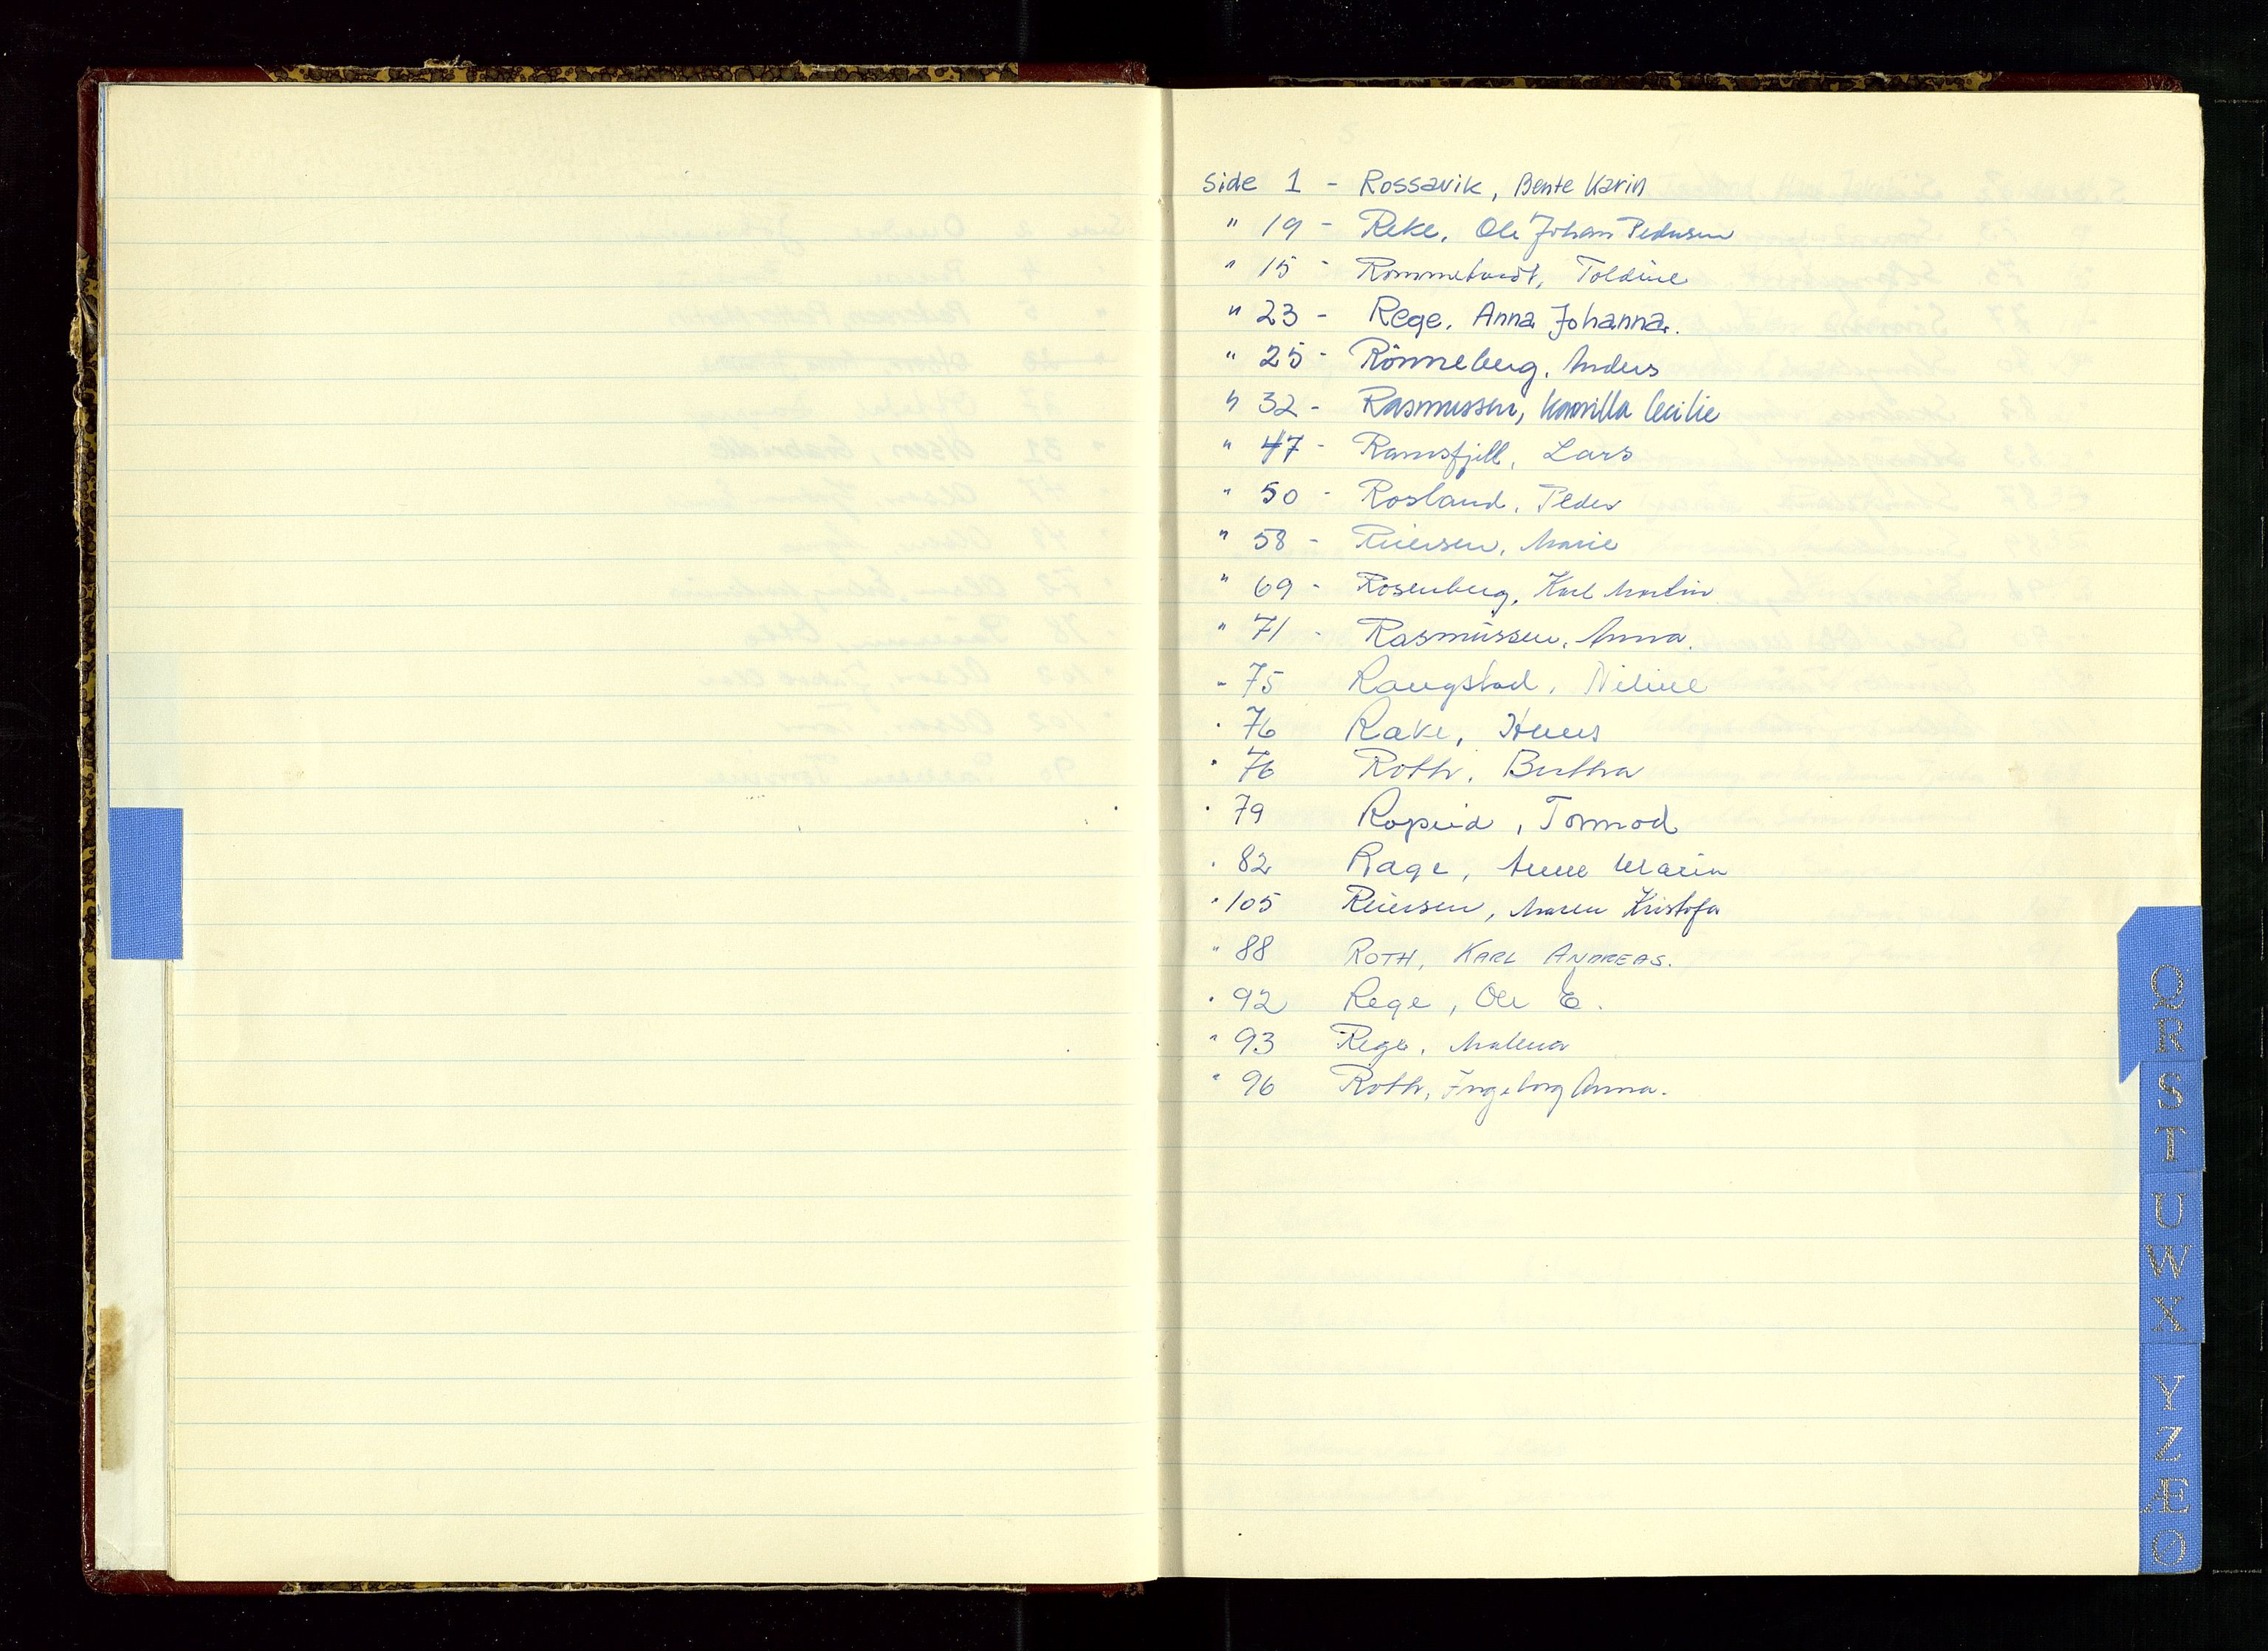 Side 1 - Rossavik, Bente Karin
" 19 - Reke, Ole Johan Pedersen
" 15 - Rommetvedt, Toldine
" 23 - Rege, Anna Johanna.
" 25 - Rönneberg, Anders
" 32 - Rasmussen, Kamilla Cecilie
" 47 - Ramsfjell, Lars
" 50 - Rosland, Peder
" 58 - Reiersen, Marie
" 69 - Rosenberg, Karl Martin
" 71 - Rasmussen, Anna.
" 75 Raugstad, Niline
" 76 Rake, Hans
" 76 Roth, Bertha
" 79 Ropeid, Tormod
" 82 Rage, Anne Maria
" 105 Reiersen, Maren Kristofa
" 88 ROTH, KARL ANDREAS.
" 92 Rege, Ole E.
" 93 Rege, Malena
" 96 Roth, Ingeborg Anna.
Q
R
S
T
U
W
X
Y
Z
Æ
Ø